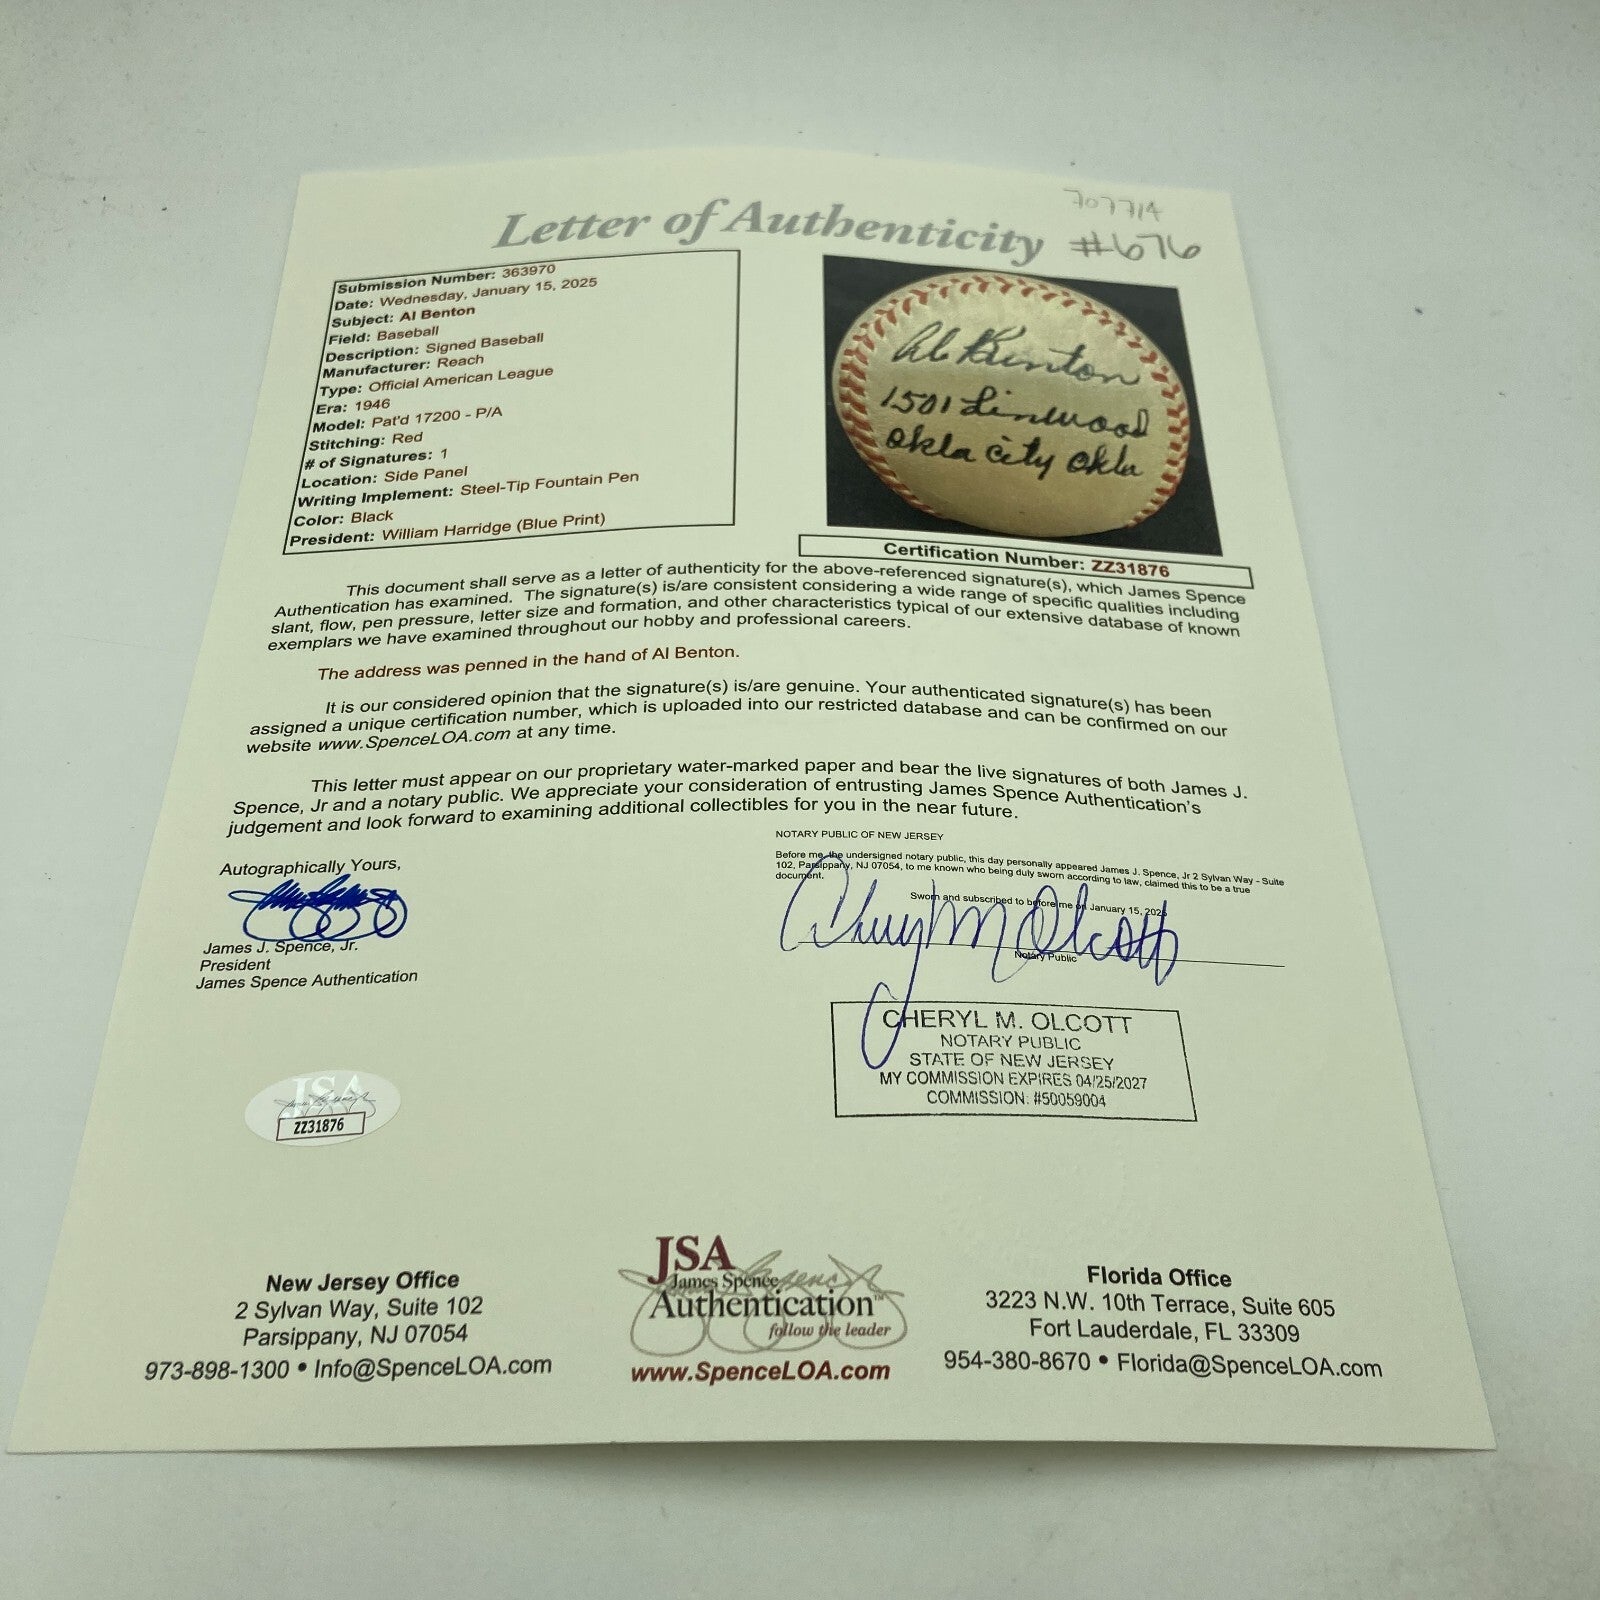 707714
Letter of Authenticity #676
Submission Number: 363970
Date: Wednesday, January 15, 2025
Subject: Al Benton
Field: Baseball
Description: Signed Baseball
Manufacturer: Reach
Type: Official American League
Era: 1946
Model: Pat'd 17200 - P/A
Stitching: Red
# of Signatures: 1
Location: Side Panel
Writing Implement: Steel-Tip Fountain Pen
Color: Black
President: William Harridge (Blue Print)
Al Benton
1501 Linwood
Okla City Okla
Certification Number: ZZ31876
This document shall serve as a letter of authenticity for the above-referenced signature(s), which James Spence
Authentication has examined. The signature(s) is/are consistent considering a wide range of specific qualities including
slant, flow, pen pressure, letter size and formation, and other characteristics typical of our extensive database of known
exemplars we have examined throughout our hobby and professional careers.
The address was penned in the hand of Al Benton.
It is our considered opinion that the signature(s) is/are genuine. Your authenticated signature(s) has been
assigned a unique certification number, which is uploaded into our restricted database and can be confirmed on our
website www.SpenceLOA.com at any time.
This letter must appear on our proprietary water-marked paper and bear the live signatures of both James J.
Spence, Jr and a notary public. We appreciate your consideration of entrusting James Spence Authentication's
judgement and look forward to examining additional collectibles for you in the near future.
Autographically Yours,
James J. Spence, Jr.
President
James Spence Authentication
NOTARY PUBLIC OF NEW JERSEY
Before me, the undersigned notary public, this day personally appeared James J. Spence, Jr 2 Sylvan Way - Suite
102, Parsippany, NJ 07054, to me known who being duly sworn according to law, claimed this to be a true
document.
Sworn and subscribed to before me on January 15, 2025
Cheryl M Olcott
Notary Public
CHERYL M. OLCOTT
NOTARY PUBLIC
STATE OF NEW JERSEY
MY COMMISSION EXPIRES 04/25/2027
COMMISSION: #50059004
JSA
ZZ31876
New Jersey Office
2 Sylvan Way, Suite 102
Parsippany, NJ 07054
973-898-1300 • Info@SpenceLOA.com
JSA
James Spence
Authentication™
follow the leader
www.SpenceLOA.com
Florida Office
3223 N.W. 10th Terrace, Suite 605
Fort Lauderdale, FL 33309
954-380-8670 • Florida@SpenceLOA.com